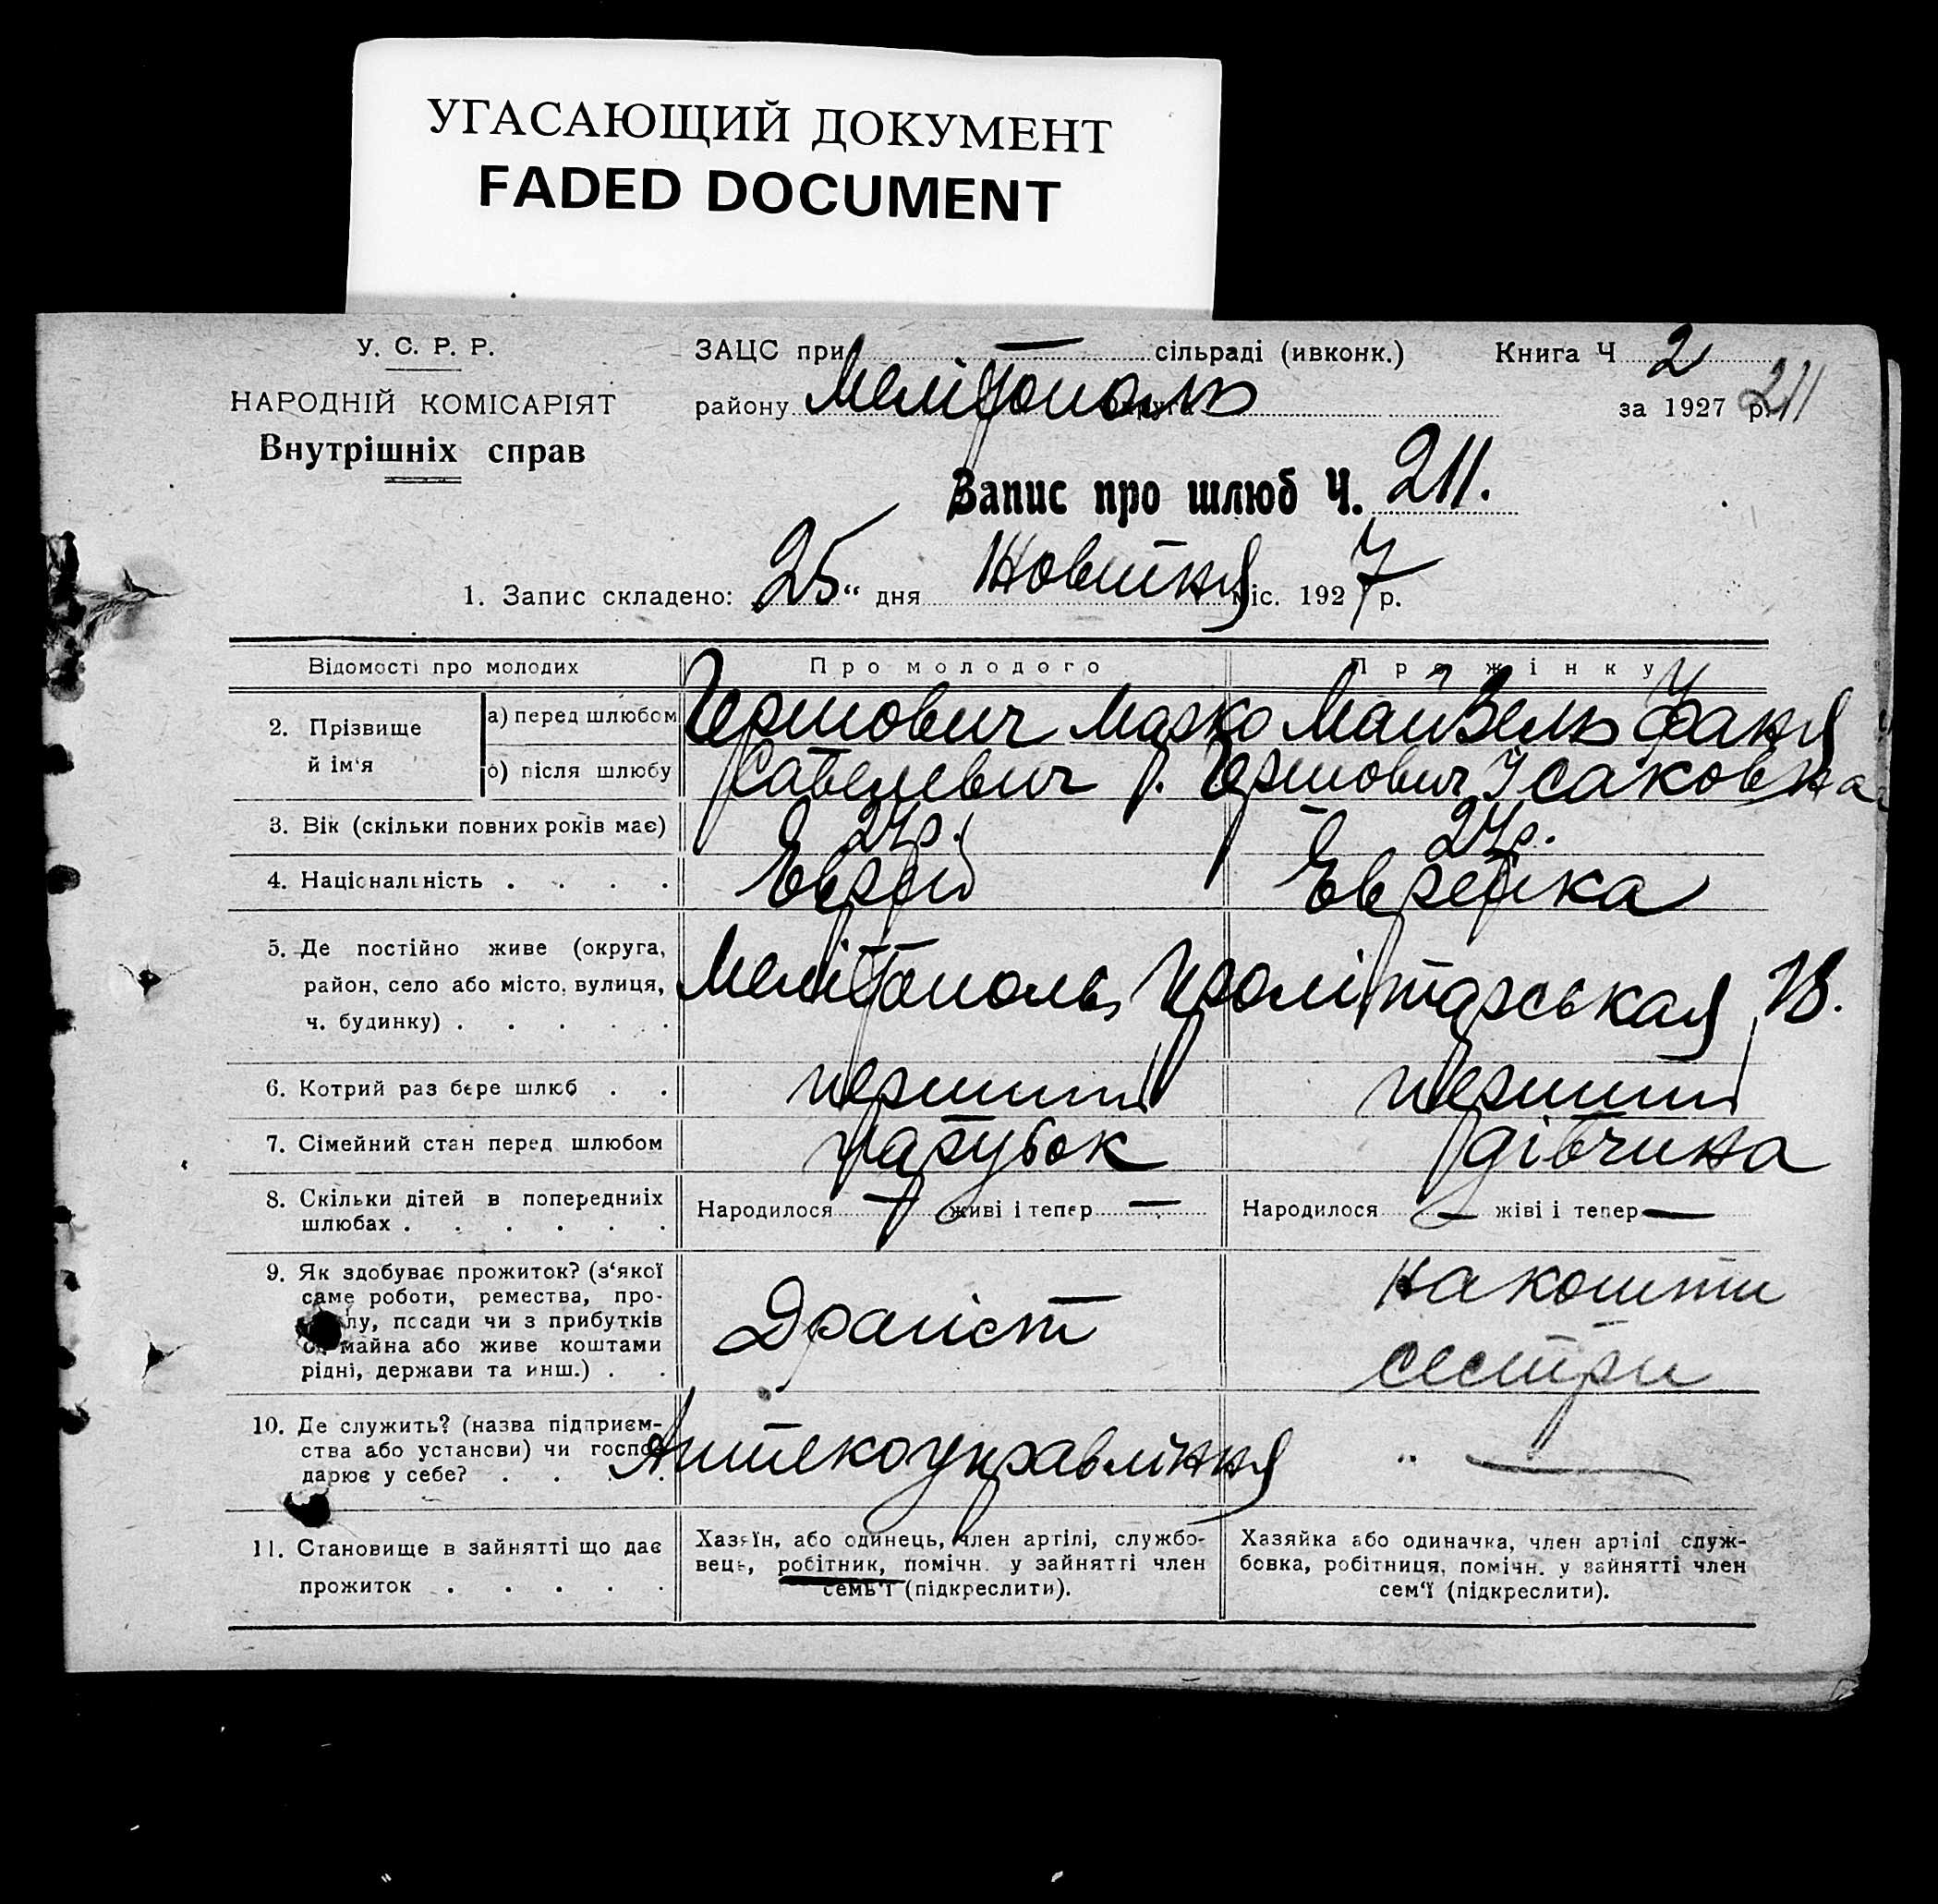 УГАСАЮЩИЙ ДОКУМЕНТ
FADED DOCUMENT
У. С. Р. Р.
НАРОДНІЙ КОМІСАРІЯТ
Внутрішніх справ
ЗАЦС при — сільраді (ивконк.) Книга Ч 2
району Мелітополь за 1927 р. 211
Запис про шлюб Ч. 211.
1. Запис складено: 25 “ дня Жовтня міс. 1927 р.
Відомості про молодих Про молодого Про жінку
2. Прізвище й ім‘я
а) перед шлюбом Гершович Марко Майзель Фаня
б) після шлюбу Савелевич Гершович Ісаковна
3. Вік (скільки повних років має) 24р. 24р.
4. Національність . . . . Еврей Еврейка
5. Де постійно живе (округа,
район, село або місто, вулиця,
ч. будинку) . . . . .
Мелітополь, Пролітарськая
6. Котрий раз бере шлюб . . перший перший
7. Сімейний стан перед шлюбом парубок дівчина
8. Скільки дітей в попередніх
шлюбах . . . . . .
Народилося — живі і тепер — Народилося — жіві і тепер —
9. Як здобуває прожиток? (з‘якої
саме роботи, ремества, про-
лу, посади чи з прибутків
майна або живе коштами
рідні, держави та инш.) . .
на кошти
сестри
10. Де служить? (назва підприєм-
ства або установи) чи госпо-
дарює у себе? . . . .
„ —
11. Становище в зайнятті що дає
прожиток . . . . .
Хазяїн, або одинець, член артілі, службо-
вець, робітник, помічн. у зайнятті член
семь‘ї (підкреслити).
Хазяйка або одиначка, член артілі служ-
бовка, робітниця, помічн. у зайнятті член
сем‘ї (підкреслити).